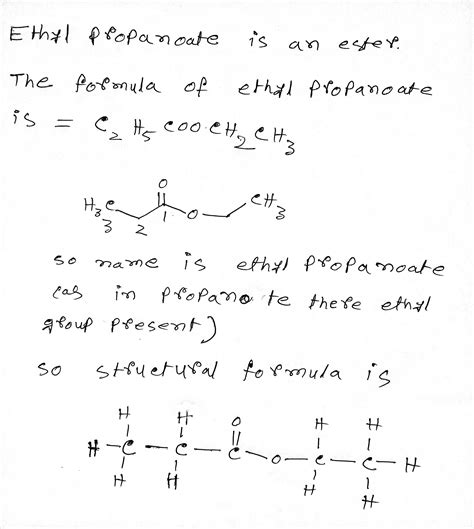 Ethyl propanoate is an ester.
The formula of ethyl propanoate
is = C2 H5 COO.CH2 CH3
O
H3C 1 O CH3
3 2
so name is ethyl propanoate
(as in propano te there ethyl
group present)
so structural formula is
H H O H H
H - C - C - C - O - C - C - H
H H H H